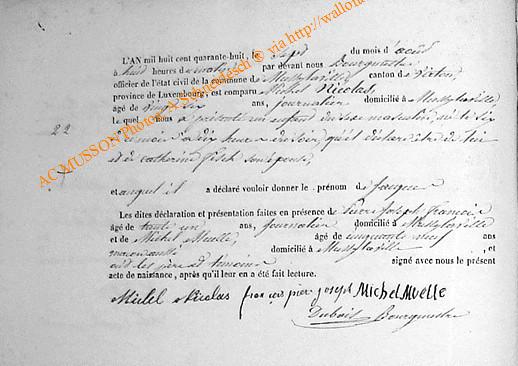 L'AN mil huit cent quarante-huit, le Sept du mois d'août
à huit heures du matin par devant nous Bourgmestre
officier de l'état civil de la commune de Mussylaville, canton de Virton,
province de Luxembourg, est comparu Michel Nicolas,
âgé de vingt six ans, journalier domicilié à Mussylaville,
22
lequel nous a présenté un enfant du sexe masculin, né le six
du mois à dix heures du soir, qu'il déclare être de lui
et de catherine son épouse,
et auquel il a déclaré vouloir donner le prénom de Jacques
Les dites déclaration et présentation faites en présence de Pierre Joseph François
âgé de trente un ans, journalier domicilié à Mussylaville
et de Michel Muelle, âgé de cinquante neuf ans
domicilié à Mussylaville et
ont les père et témoins signé avec nous le présent
acte de naissance, après qu'il leur en a été fait lecture.
Michel Nicolas françois pier joseph Michel Muelle
Dubois Bourgmestre
AC MUSSON Photos A. Schneidesch ® via http://wallonia